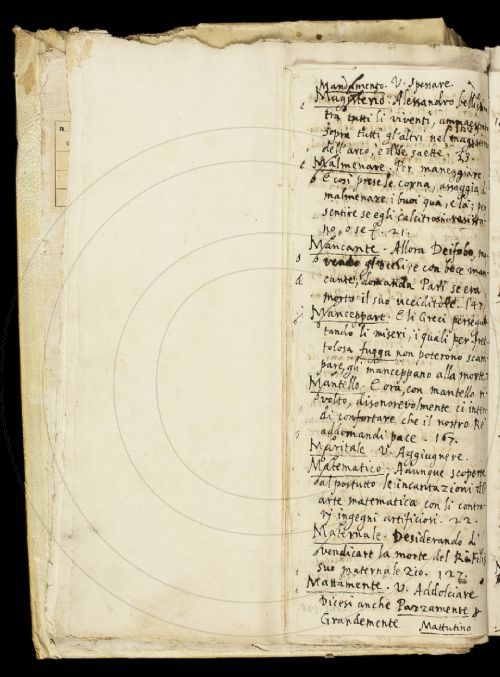 Mandamento. V. Spessare.
Magisterio. Alessandro bellis
tra tutti li viventi, ammaestrato
sopra tutti gl'altri nel magistero
dell'arco, e delle saette. 53.
Malmenare. Per maneggiare
E così prese le corna, assaggia di
malmenare i buoi qua, e là; per
sentire se egli calcitrosi resista
no, o se f. 21.
Mancante. Allora Deifobo, mo
vendo gl'occhi, e con voce man
cante, domanda Pari se era
morto il suo ucciditore. 147.
Manceppare. E li Greci persegui
tando li miseri, i quali per fret
tolosa fugga non poterono scam
pare, gli manceppano alla morte.
Mantello. E ora, con mantello ri
volto, disonorevolmente ci inten
di confortare che il nostro Re
addomandi pace. 167.
Maritale. V. Aggiugnere.
Matematico. Adunque scoperte
dal postutto le incantazioni dell'
arte matematica con li contra
rj ingegni artificiosi. 22.
Maternale. Desiderando di
vendicare la morte del Re
suo maternale zio. 127.
Mattamente. V. Addolciare
Dicesi anche Pazzamente
Grandemente Mattutino